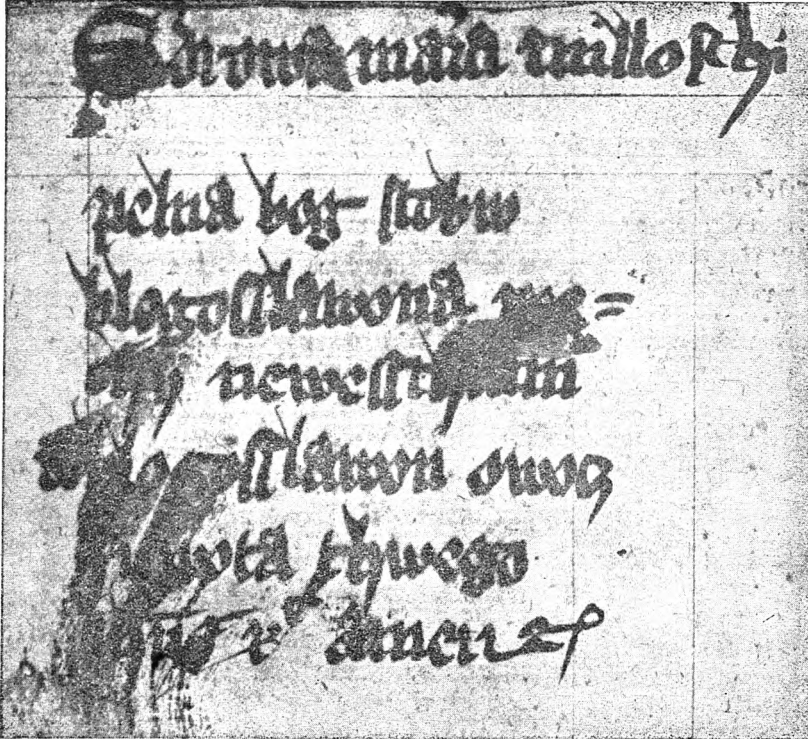 Sdrowa maria milloschi
pelna bog stobu
blogosslawona me=
newessthami
blogosslawon owocz
zywota thwego
ihus xpus amen